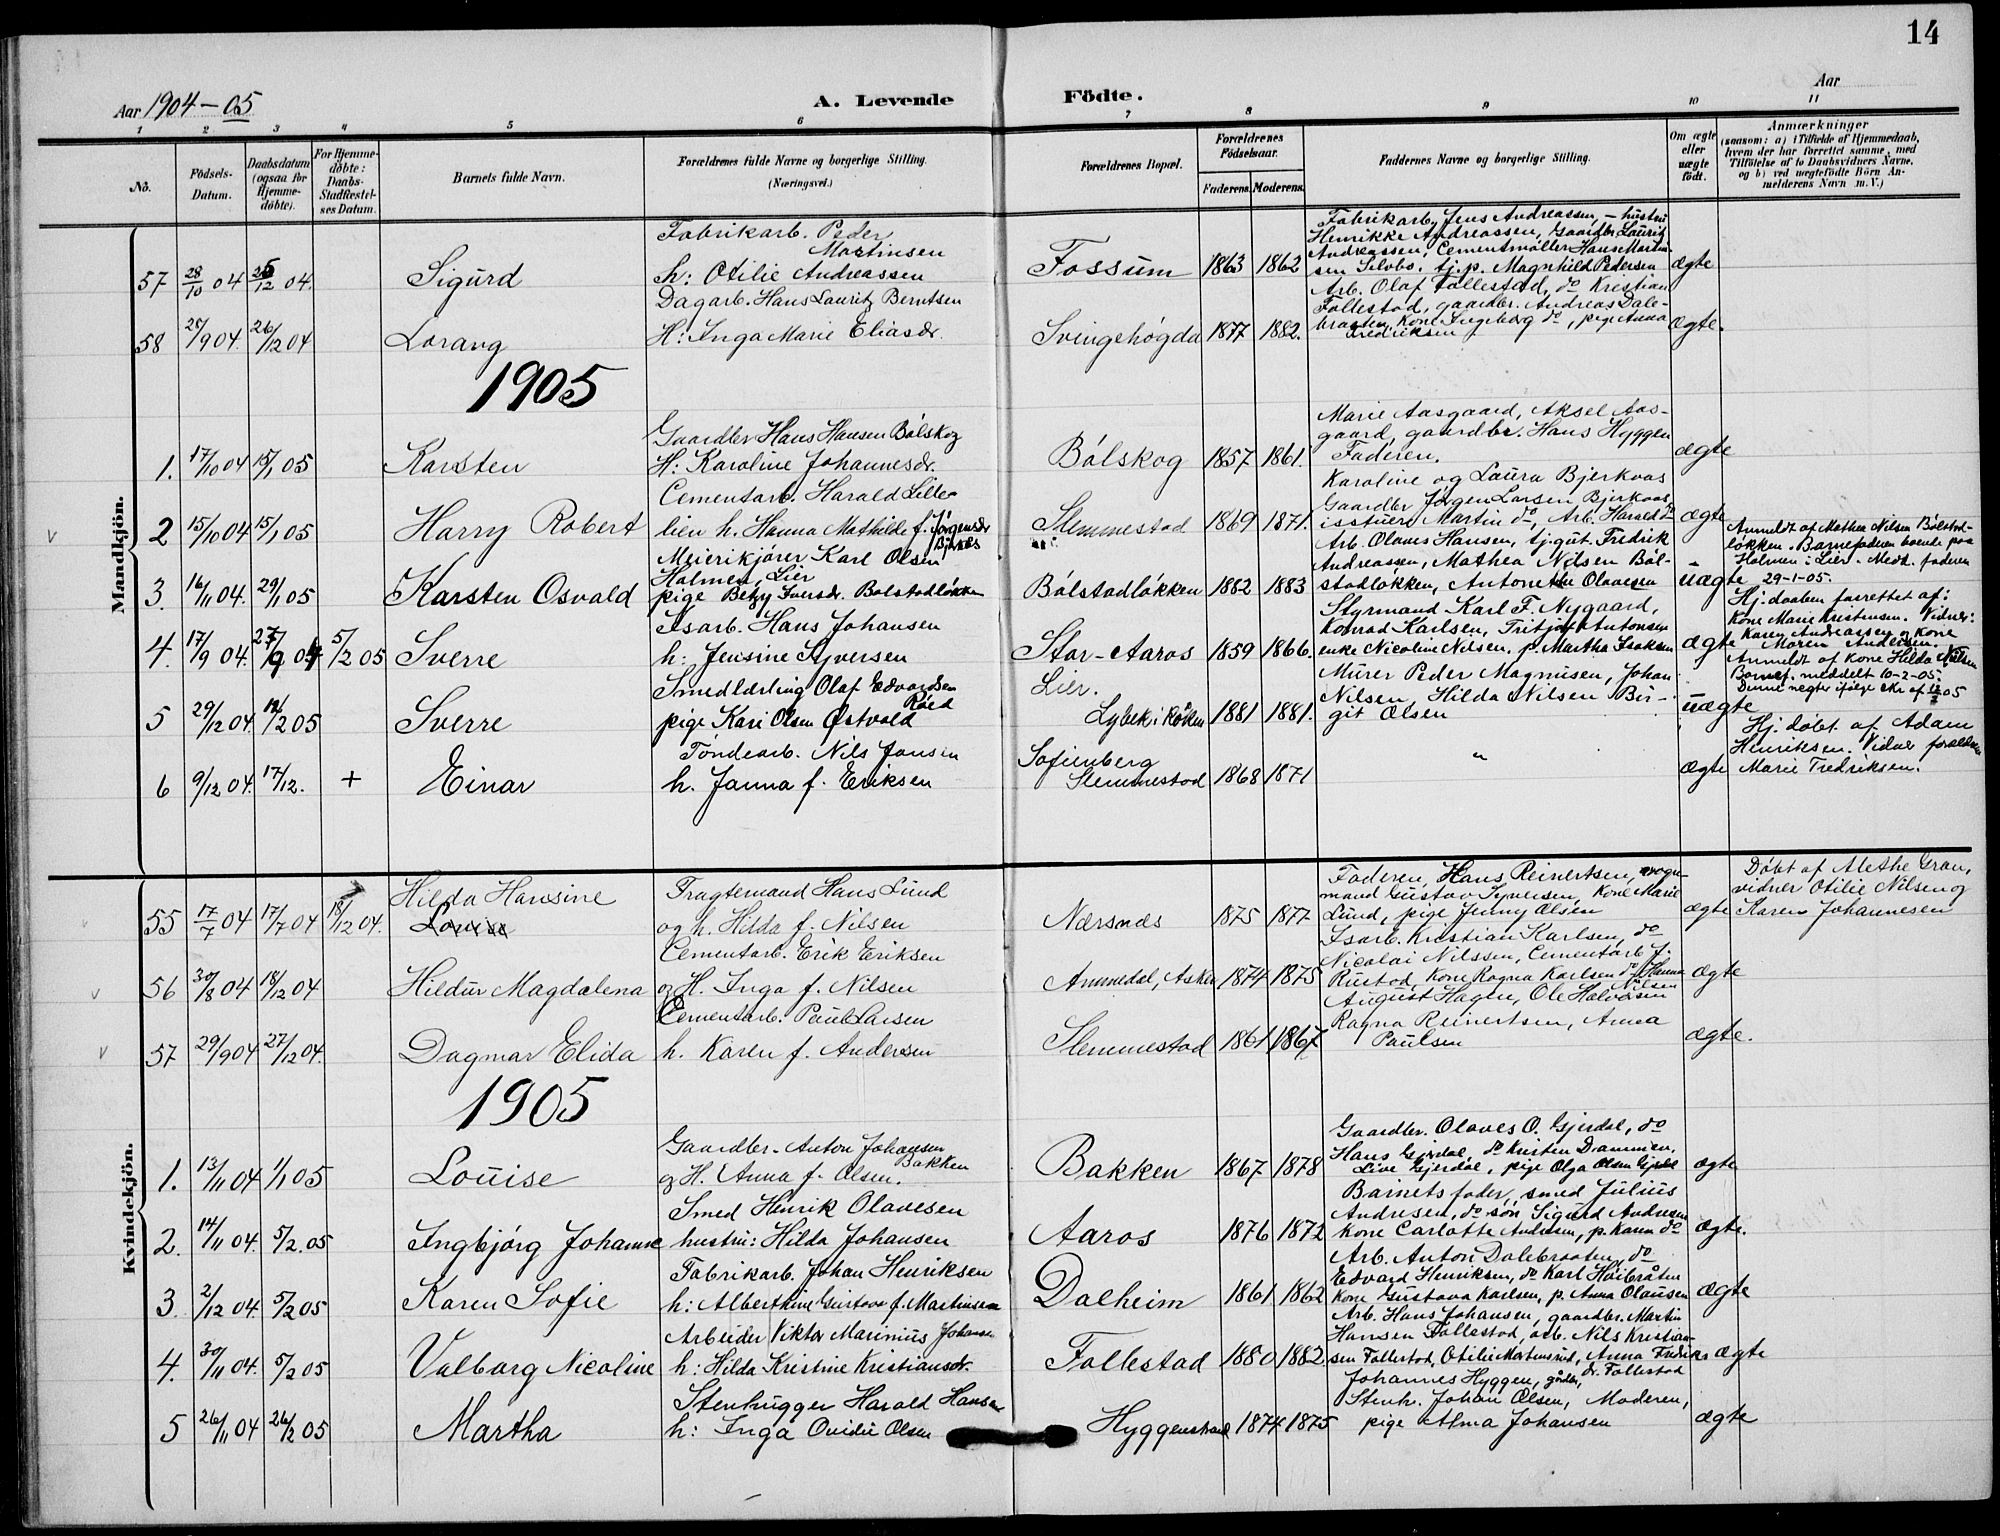 14
Aar 1904-05
A. Levende Födte.
Aar
1 2 3 4 5 6 7 8 9 10 11
No.
Födsels-Datum.
Daabsdatum (ogsaa for Hjemme-döbte).
For Hjemme-döbte: Daabs-Stadfæstel-ses Datum.
Barnets fulde Navn.
Forældrenes fulde Navne og borgerlige Stilling.
(Næringsvei.)
Forældrenes Bopæl.
Forældrenes Födselsaar.
Faderens. Moderens.
Faddernes Navne og borgerlige Stilling.
Om ægte eller uægte födt.
Anmærkninger
(saasom: a) i Tilfælde af Hjemmedaab,
hvem der har forrettet samme, med
Tilföielse af to Daabsvidners Navne,
og b) ved uægtefödte Börn An-
melderens Navn m. V.)
Mandkjön.
57 28/10 04 26/12 04. Sigurd
Fabrikarb. Peder
Martinsen
h: Otilie Andreassen
Fossum 1863 1862
Fabrikarb. Jens Andreassen, - hustru
Henrikke Andreassen, Gaardbr. Lauritz
Andreassen, Cementmøller Hans Martin-
sen Selvbo. tj.p. Magnhild Pedersen
ægte
58 28/9 04. 26/12 04 Lorang
Dagarb. Hans Lauritz Berntsen
H: Inga Marie Eliasdr.
Svingehøgda 1877 1882.
Arb. Olaf Follestad, do Kristian
Follestad, gaardbr. Andreas Dale-
braaten, Kone Ingeborg do, pige Anna
Fredriksen
ægte.
1905
1. 17/10 04 15/1 05 Karsten
Gaardbr Hans Hansen Bølskog
H: Karoline Johannesdr.
Bølskog 1857 1861.
Marie Aasgaard, Aksel Aas-
gaard, gaardbr. Hans Hyggen
Faderen.
ægte
2 15/10 04 15/1 05 Harry Robert
Cementarb. Harald Lille-
lien h. Hanna Mathilde f. Jørgensdr
Bjerkås
Slemmestad 1869 1871.
Karoline og Laura Bjerkaas
Gaardbr Jørgen Larsen Bjerkaas,
isstuer Martin do, Arb. Harald do
ægte
3. 16/11 04. 29/1 05 Karsten Osvald
Meierikjører Karl Olsen
Holmen, Lier
pige Betzy Iversdr. Bølstadløkken
Bølstadløkken 1882 1883
Arb. Olaves Hansen, tj.gut. Fredrik
Andreassen, Mathea Nilsen Bøl-
stadløkken, Antonette Olavesen
uægte
Anmeldt af Mathea Nilsen Bølstad-
løkken. Barnefaderen boende paa
Holmen i Lier. Medt. faderen
29-1-05.
4. 17/9 04. 27/9 04 5/2 05 Sverre
Isarb. Hans Johansen
h: Jensine Syversen
Stor-Aaros 1859 1866.
Styrmand Karl F. Nygaard,
Konrad Karlsen, Fritjof Antonsen
enke Nicoline Nilsen, p. Martha Isaksen
ægte
Hj. daaben forrettet af:
Kone Marie Kristensen. Vidner:
Karen Andreassen og Kone
Maren Andersen.
5 29/12 04. 12/2 05 Sverre
Smedlærling Olaf Edvardsen
Røed
pige Kari Olsen Østvold
Lier.
Lybek i Røken 1881 1881.
Murer Peder Magnusen, Johan
Nilsen, Hilda Nilsen Bir-
git Olsen
uægte
Anmeldt af Kone Hilda Nilsen
Barnef. meddelt 10-2-05.
Denne negter ifølge skr. af
6 9/12 04. 17/12. + Einar
Tøndearb. Nils Jansen
h. Janna f. Eriksen
Sofienberg
Slemmestad 1868 1871
"
ægte
Hj. døbt af Adam
Henriksen. Vidne forældrene
Marie Fredriksen.
Kvindekjön.
55 17/7 04 17/7 04 18/12 04. Hilda Hansine
Louise
Fragtemand Hans Lund
og h. Hilda f. Nilsen
Nærsnæs 1875 1877
Faderen, Hans Reinertsen, vogn-
mand Gustav Syvertsen, Kone Marie
Lund, pige Jenny Olsen
ægte
Döbt af Alethe Gran,
vidner Otilie Nilsen og
Karen Johannesen
56 30/8 04 18/12 04 Hildur Magdalena
Cementarb. Erik Eriksen
og H. Inga f. Nilsen
Ammedal, Asker 1874 1875
Isarb. Kristian Karlsen, do
Nicolai Nilssen, Cementarb J.
Rustad, Kone Ragna Karlsen do Hanna
Nilsen
ægte
57 29/9 04 27/12 04. Dagmar Elida
Cementarb. Paul Larsen
h. Karen f. Andersen
Slemmestad 1861 1867
August Hagen, Ole Halvorsen
Ragna Reinertsen, Anna
Paulsen
ægte.
1905
1. 13/11 04 1/1 05 Louise
Gaardbr. Anton Johansen
Bakken
og H. Anna f. Olsen.
Bakken 1867 1878
Gaardbr. Olaves O. Gjerdal, do
Hans Gjerdal, do Kristen Drammien,
Live Gjerdal, pige Olga Olsen Gjerdal
ægte
2. 14/11 04. 5/2. 05 Ingbjørg Johanne
Smed Henrik Olavesen
hustru: Hilda Johansen
Aaros 1876 1872
Barnets fader, smed Julius
Andresen, do søn Sigurd Andresen
Kone Carlotte Andresen, p. Karen do
ægte.
3 2/12 04. 5/2 05 Karen Sofie
Fabrikarb. Johan Henriksen
h: Alberthine Gustava f. Martinsen
Dalheim 1861 1862
Arb. Anton Dalebraaten, do
Edvard Henriksen, do Karl Høibråten
Kone Gustava Karlsen, p. Anna Olausen
ægte
4. 30/11 04. 5/2 05 Valborg Nicoline
Arbeider Viktor Marinius Johansen
h: Hilda Kristine Kristiansdr.
Follestad 1880 1882
Arb. Hans Johansen, gaardbr. Martin
Hansen Follestad, arb. Nils Kristian-
sen Follestad, Otilie Mortensrud, Anna
ægte
5 26/11 04 26/2 05 Martha
Stenhugger Harald Hansen
h: Inga Ovidie Olsen
Hyggenstrand 1874 1875
Johannes Hyggen, gårdbr, Follestad
Stenh. Johan Olsen, Moderen,
pige Alma Johansen
ægte